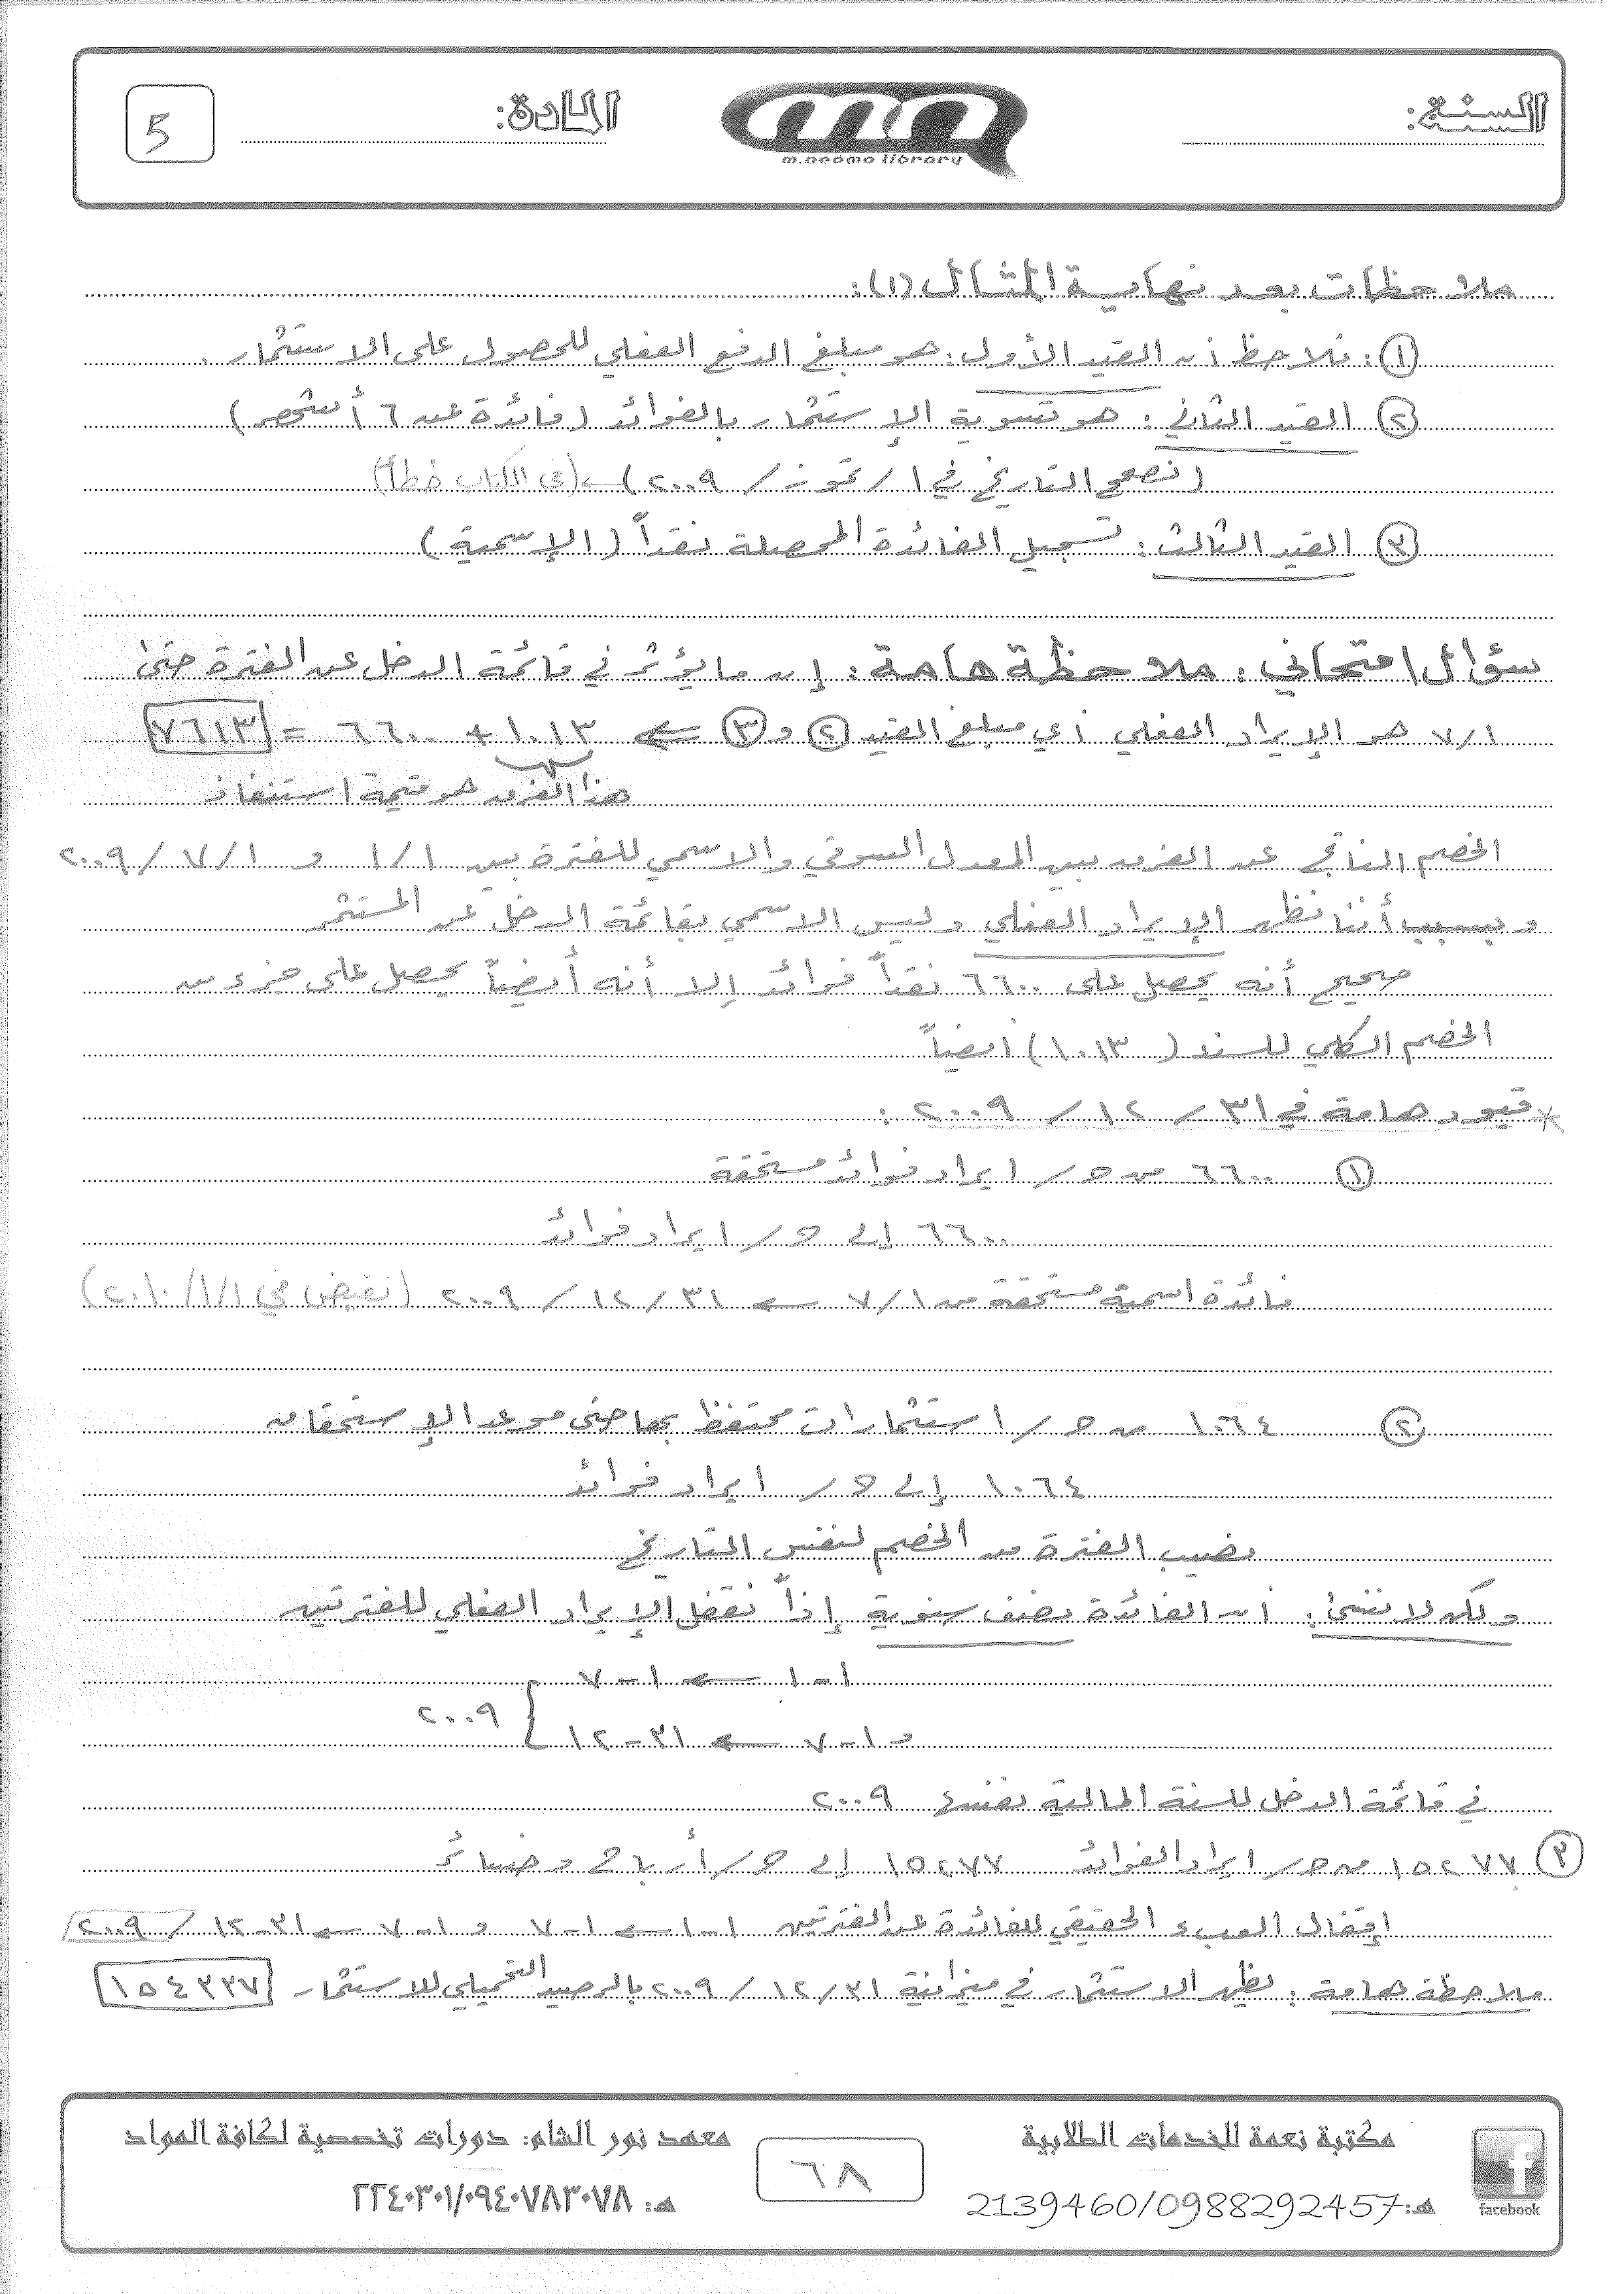 السنة:
m.neama library
المادة:
5
ملاحظات بعد نهاية المثال (١):
① : نلاحظ أن القيد الأول : هو مبلغ الدفع الفعلي للحصول على الاستثمار .
② القيد الثاني : هو تسوية الإستثمار بالفوائد (فائدة عن ٦ أشهر)
(نصحح التاريخ في ١ / تموز / ٢٠٠٩) ← (في الكتاب خطأ)
③ القيد الثالث : تسجيل الفائدة المحصلة نقداً (الإسمية)
سؤال امتحاني : ملاحظة هامة : إن ما يؤثر في قائمة الدخل عن الفترة حتى
٧/١ هو الإيراد الفعلي أي مبلغ القيد ② و ③ ← ١٠١٣ + ٦٦٠٠ = ٧٦١٣
هذا الفرق هو قيمة استنفاذ
الخصم الناتج عن الفرق بين المعدل السوقي والاسمي للفترة بين ١/١ و ٧/١ / ٢٠٠٩
وبسبب أننا نظهر الإيراد الفعلي وليس الاسمي بقائمة الدخل عن المستثمر
صحيح أنه يحصل على ٦٦٠٠ نقداً فوائد إلا أنه أيضاً يحصل على جزء من
الخصم الكلي للسند (١٠١٣) أيضاً
* قيود هامة في ٣١ / ١٢ / ٢٠٠٩ :
① ٦٦٠٠ من ح / ايراد فوائد مستحقة
٦٦٠٠ إلى ح / ايراد فوائد
فائدة اسمية مستحقة من ٧/١ ← ٣١ / ١٢ / ٢٠٠٩ (تقبض في ١/١/ ٢٠١٠)
② ١٠٦٤ من ح / استثمارات محتفظ بها حتى موعد الإستحقاق
١٠٦٤ إلى ح / ايراد فوائد
نصيب الفترة من الخصم لنفس التاريخ
ولكن لا ننسى : أن الفائدة نصف سنوية إذاً نقفل الإيراد الفعلي للفترتين
١-١ ← ١-٧
و ١-٧ ← ٣١-١٢ } ٢٠٠٩
في قائمة الدخل للسنة المالية نفسها ٢٠٠٩
③ ١٥٢٧٧ من ح / ايراد الفوائد ١٥٢٧٧ إلى ح / أرباح وخسائر
إقفال العبء الحقيقي للفائدة عن الفترتين ١-١ ← ١-٧ و ١-٧ ← ٣١-١٢ / ٢٠٠٩
ملاحظة هامة : نظهر الاستثمار في ميزانية ٣١ / ١٢ / ٢٠٠٩ بالرصيد التحميلي للاستثمار ١٥٤٣٣٧
مكتبة نعمة للخدمات الطلابية
هـ: 2139460/0988292457
٦٨
معهد نور الشام: دورات تخصصية لكافة المواد
هـ: ٢٢٤٠٣٠١/٠٩٤٠٧٨٣٠٧٨
facebook